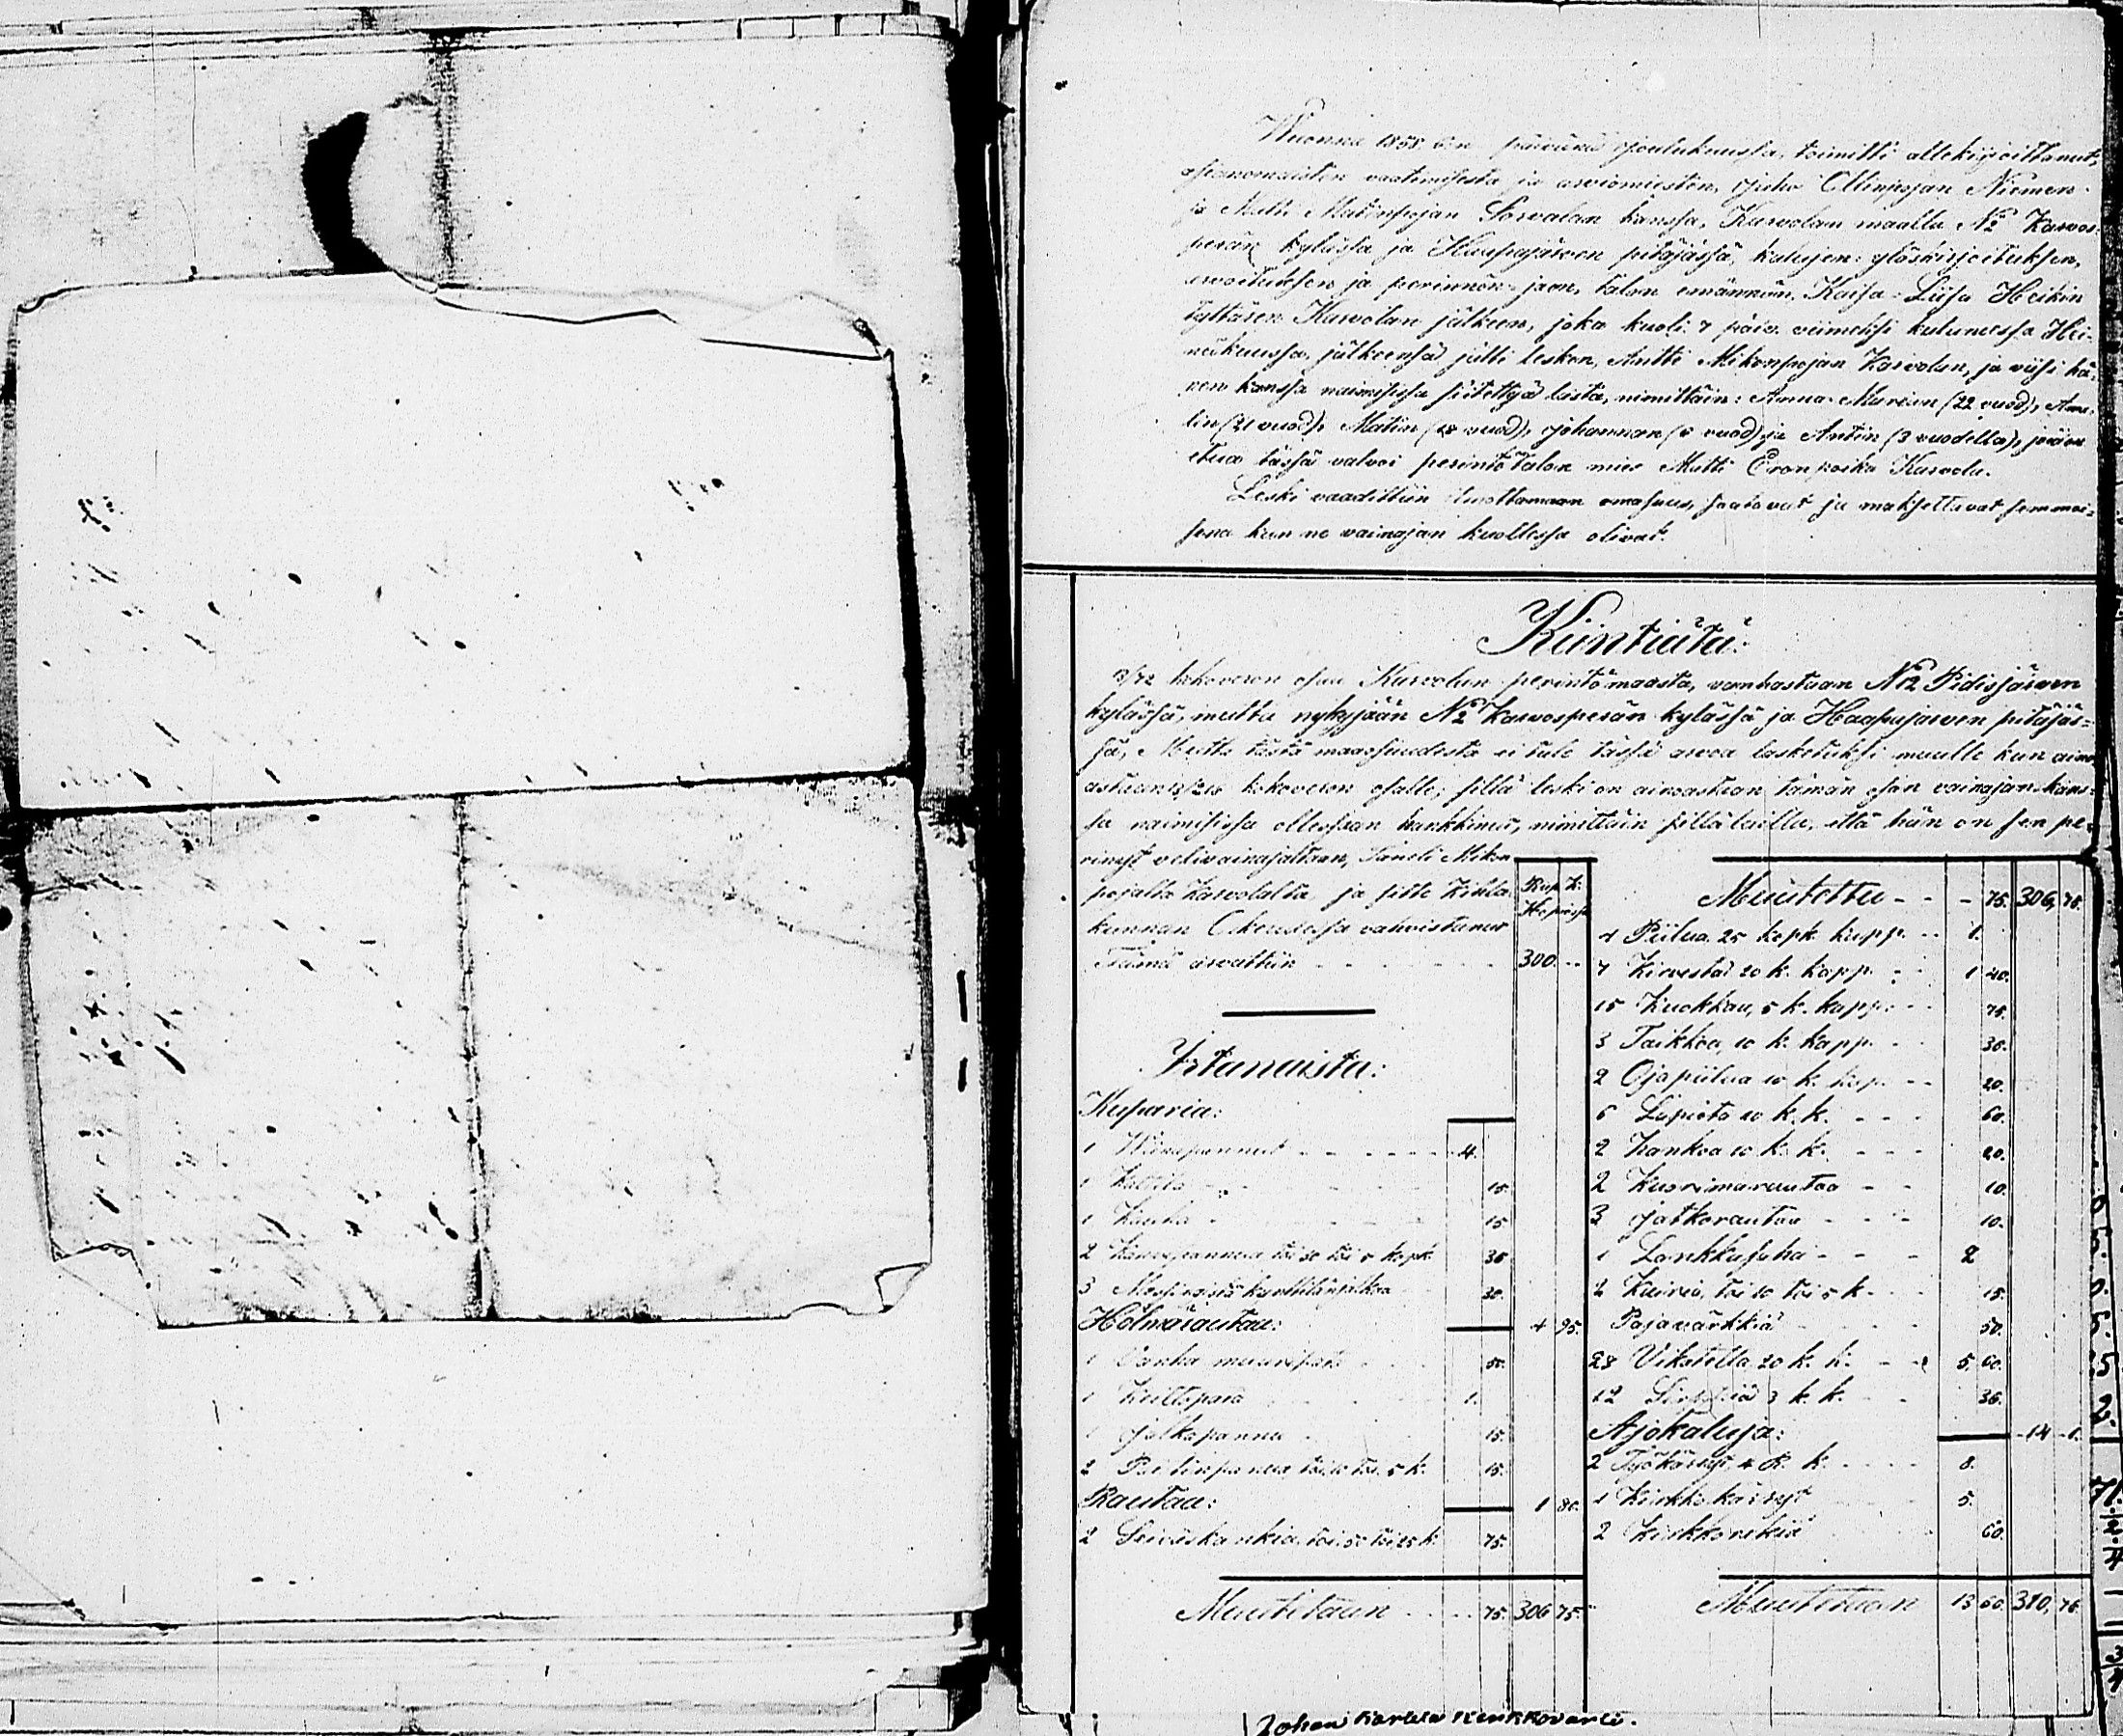 Wuonna 1858 6:n päivänä Joulukuussa, toimitti allekirjoittanut,
asianomaisten vaatimisesta ja arviomiesten, Juho Ollinpojan Niemen
ja Matti Matinpojan Sorvalan kanssa, Karvolan maalla N:o 2 Karvos-
perän kylässä ja Haapajärven pitäjässä, kalujen ylöskirjoituksen,
arvoituksen ja perinnön jaon, talon emännän, Kaisa-Liisa Heikin
tyttären Karvolan jälkeen, joka kuoli 7 päiv. viimeksi kuluneessa Hei-
näkuussa, jälkeensä jätti lesken, Antti Mikonpojan Karvolan, ja viisi hä-
nen kanssa naimisissa siitettyä lasta, nimittäin: Anna-Marian (22 vuod), Ama-
lin (21 vuod), Matin (18 vuod), Johannan (6 vuod) ja Antin (3 vuodella), joiden
etua tässä valvoi perintötalon mies Matti Eronpoika Karvola.
Leski vaadittiin ilmoittamaan omasuus, saatavat ja maksettavat semmoi-
sena kun ne vainajan kuollessa olivat.
Kiintiätä:
13/72 kokoveron osaa Karvolan perintömaasta, vanhastaan N:o 12 Pidisjärven
kylässä, mutta nykyjään N:o 2 Karvosperän kylässä ja Haapajärven pitäjäs-
sä, Mutta tästä maaosuudesta ei tule tässä arvoa lasketuksi muulle kun aino-
astaan /216 kokoveron osalle; sillä leski on ainoastaan tämän osan vainajan kans-
sa naimisissa ollessaan hankkinut, nimittäin sillä lailla, että hän on sen pe-
rinyt velivainajaltaan, Mikon
pojalta Karvolalta ja sitte Kihla-
kunnan Oikeudessa vahvistanut
Rup. K.
Hopiassa
Tämä arvattiin 300. --
Irtanaista:
Kuparia:
1 Wiinapannut 4.
1 Kattila 15.
1 Kauha 15.
2 Kahvipannua toi 30 toi 5 kopk. 35
3 Messinkistä kynttilänjalkaa 30.
Hölmärautaa: 4 95.
1 Vanha muuripata 50.
1 Keittopata 1.
1 Jalkapannu 15.
2 Paistinpannua, toi 10 toi 5 k. 15.
Rautaa: 1 80.
2 Seiväskankia, toi 50 toi 25 k. 75.
Muutetaan 75. 306 75.
Muutettu - - - 75. 306, 75.
4 Piilua 25 kopk kapp. 1.
7 Kirvestä 20 k. kapp. 1 40.
15 Kuokkaa, 5 k. kapp. 75.
3 Taikkoa, 10 k. kapp. 30.
2 Ojapiilua 10 k. kap. 20.
6 Lapiota 10 k. k. 60.
2 Hankoa 10 k. k. 20.
2 Kuorimarautaa 10.
3 Jatkorautaa 10.
1 Lankkusaha 2
2 Kairia, toi 10 toi 5 k. 15.
Pajavärkkiä 50.
28 Vikatetta 20 k. k. 5. 60.
12 Sirppiä 3 k. k. 36.
Ajokaluja: 14 1.
2 Työkärryt, 4 R. k. 8.
1 Kirkkokärryt 5.
2 Kirkkorekiä 60.
Muutetaan 13 60. 310, 76.